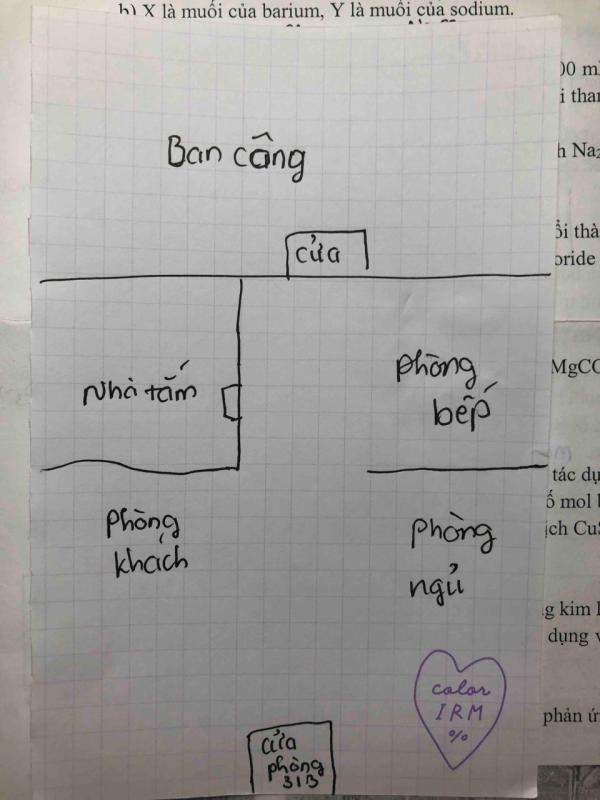 b) X là muối của barium, Y là muối của sodium.
Ban công
cửa
Nhà tắm
phòng
bếp
phòng
khách
phòng
ngủ
color
IRM
%
cửa
phòng
313
00 ml
i than
h Na₂
ổi thà
oride
MgCO
tác dụ
ố mol b
ịch CuS
g kim l
dụng v
phản ứn